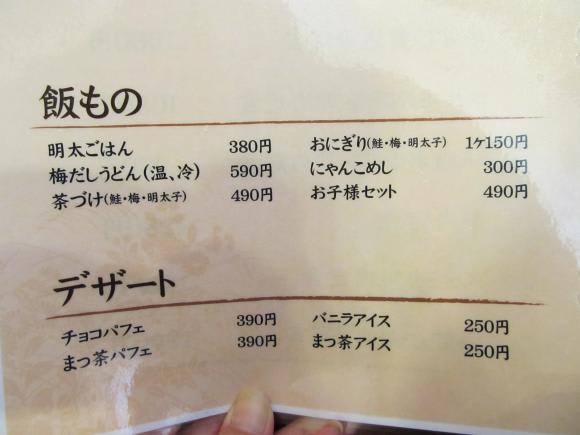 飯もの
明太ごはん 380円
梅だしうどん(温、冷) 590円
茶づけ(鮭・梅・明太子) 490円
おにぎり(鮭・梅・明太子) 1ケ150円
にゃんこめし 300円
お子様セット 490円
デザート
チョコパフェ 390円
まっ茶パフェ 390円
バニラアイス 250円
まっ茶アイス 250円